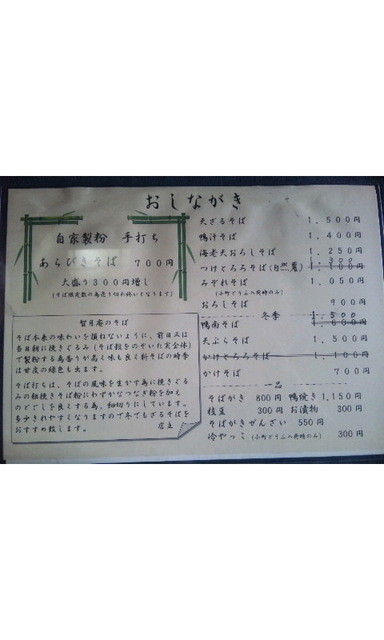 おしながき
自家製粉 手打ち
あらびきそば 700円
大盛り300円増し
(そば限定数の為売り切れ次第となります)
智月庵のそば
そば本来の味わいを損ねないように、前日又は
各日朝に挽きぐるみ(そば殻をのぞいた実全体)
で製粉する為香りが高く味も良く新そばの時季
は甘皮の緑色も出ます。
そば打ちは、そばの風味を生かす為に挽きぐる
みの粗挽きそば粉にわずかなつなぎ粉を加え
のどごしを良くする為、細切りにしています。
多少きれやすくなりますので冬でもざるそばを
おすすめ致します。 店主
天ざるそば 1,500円
鴨汁そば 1,400円
海老天おろしそば 1,250円
つけとろろそば(自然薯) 1,300
みぞれそば 1,050円
(小町どうふ入荷時のみ)
おろしそば 900円
冬季
鴨南そば 1,500
天ぷらそば 1,500円
かけとろろそば 1,100円
かけそば 700円
一品
そばがき 800円 鴨焼き 1,150円
枝豆 300円 お漬物 300円
そばがきぜんざい 550円
冷やっこ (小町どうふ入荷時のみ) 300円